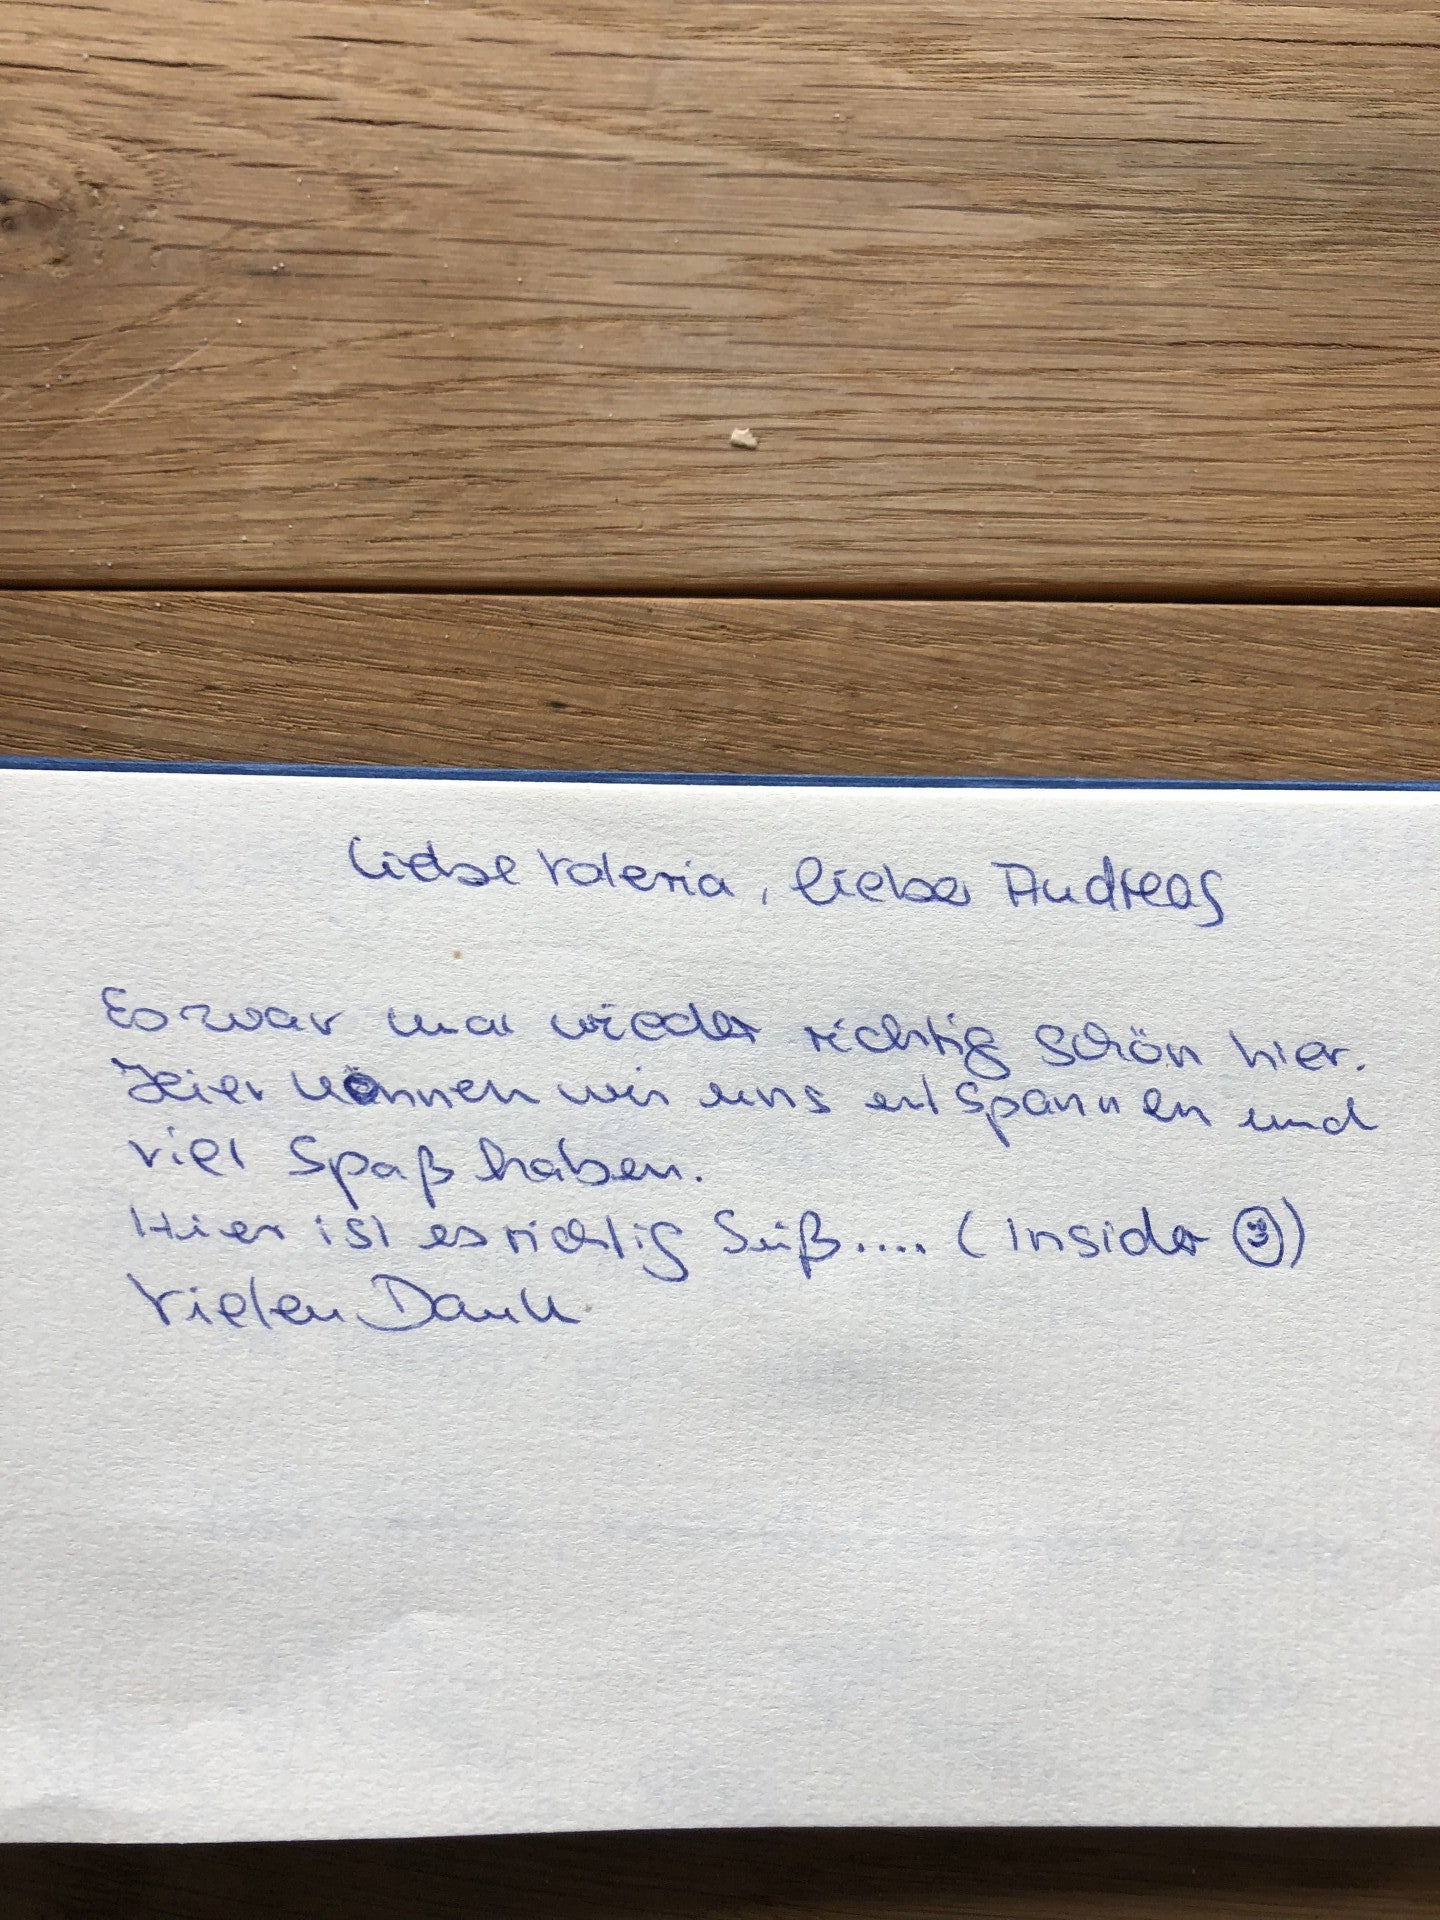 Liebe Valeria, lieber Andreas
Es war mal wieder richtig schön hier.
Hier können wir uns entspannen und
viel Spaß haben.
Hier ist es richtig Süß.... (Insider ☺)
Vielen Dank